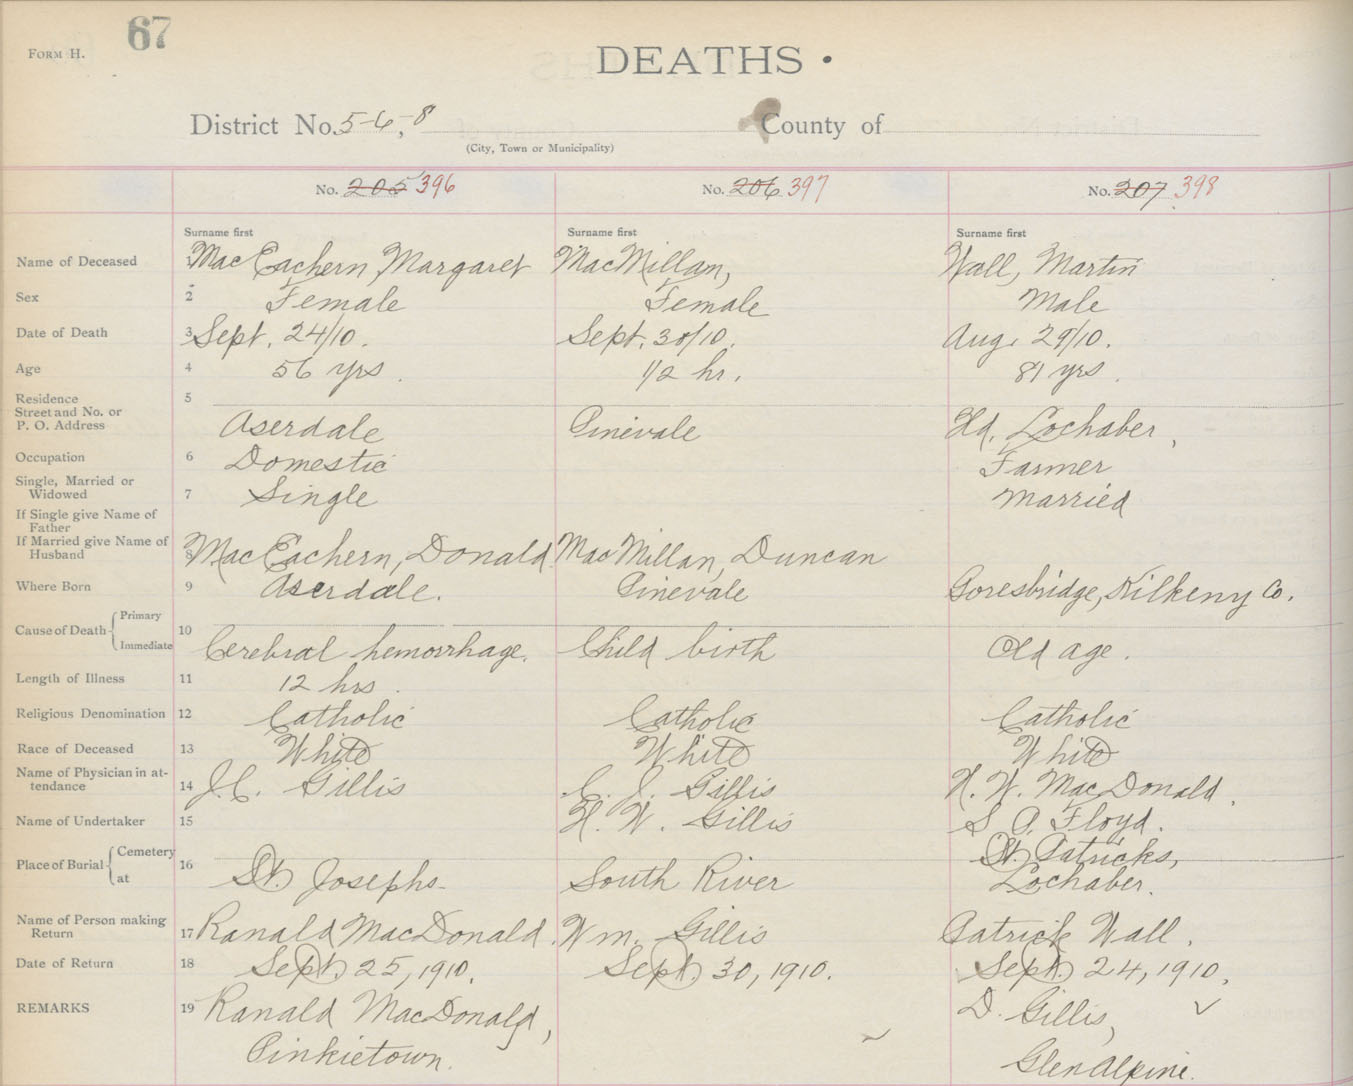 67
FORM H.
DEATHS.
District No. 5-6, -8 County of
(City, Town or Municipality)
No. 205 396 No. 206 397 No. 207 398
Surname first Surname first Surname first
Name of Deceased 1 MacEachern, Margaret MacMillan, Wall, Martin
Sex 2 Female Female Male
Date of Death 3 Sept. 24/10. Sept. 30/10. Aug. 29/10.
Age 4 56 yrs. 1/2 hr. 81 yrs.
Residence 5
Street and No. or
P. O. Address Aserdale Pinevale Hd. Lochaber,
Occupation 6 Domestic Farmer
Single, Married or
Widowed 7 Single Married
If Single give Name of
Father
If Married give Name of
Husband 8 MacEachern, Donald. MacMillan, Duncan
Where Born 9 Aserdale. Pinevale Goresbridge, Kilkenny Co.
Cause of Death Primary 10
Immediate Cerebral hemorrhage. Child birth Old age.
Length of Illness 11 12 hrs.
Religious Denomination 12 Catholic Catholic Catholic
Race of Deceased 13 White White White
Name of Physician in at-
tendance 14 J.C. Gillis C. J. Gillis H. W. MacDonald.
Name of Undertaker 15 H. W. Gillis S A. Floyd.
Place of Burial Cemetery 16 St. Patricks,
at St. Josephs. South River Lochaber.
Name of Person making
Return 17 Ranald MacDonald. Wm. Gillis Patrick Wall.
Date of Return 18 Sept. 25, 1910. Sept. 30, 1910. Sept. 24, 1910.
REMARKS 19 Ranald MacDonald, D. Gillis,
Pinkietown. Glen Alpine.